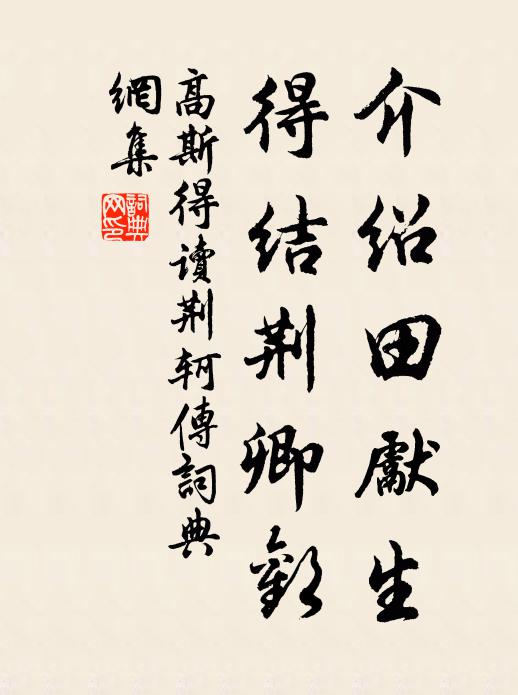 介紹田獻生
得結荆卿歡
高斯得讀荆軻傳詞典
網集
詞典
网印